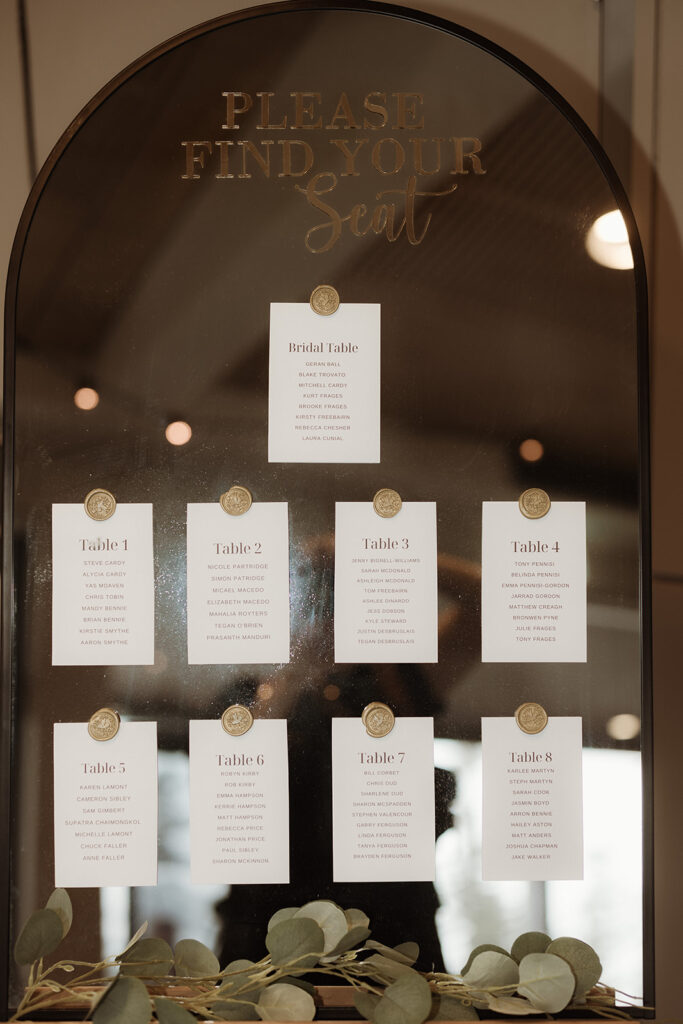 PLEASE
FIND YOUR
Seat
Bridal Table
GERAN BALL
BLAKE TROVATO
MITCHELL CARDY
KURT FRAGES
BROOKE FRAGES
KIRSTY FREEBAIRN
REBECCA CHESHER
LAURA CUNIAL
Table 1
STEVE CARDY
ALYCIA CARDY
YAS MOAVEN
CHRIS TOBIN
MANDY BENNIE
BRIAN BENNIE
KIRSTIE SMYTHE
AARON SMYTHE
Table 2
NICOLE PARTRIDGE
SIMON PATRIDGE
MICAEL MACEDO
ELIZABETH MACEDO
MAHALIA ROYTERS
TEGAN O'BRIEN
PRASANTH MANDURI
Table 3
JENNY BIGNELL-WILLIAMS
SARAH MCDONALD
ASHLEIGH MCDONALD
TOM FREEBAIRN
ASHLEE DINARDO
JESS DOBSON
KYLE STEWARD
JUSTIN DESBRUSLAIS
TEGAN DESBRUSLAIS
Table 4
TONY PENNISI
BELINDA PENNISI
EMMA PENNISI-GORDON
JARRAD GORDON
MATTHEW CREAGH
BRONWEN PYNE
JULIE FRAGES
TONY FRAGES
Table 5
KAREN LAMONT
CAMERON SIBLEY
SAM GIMBERT
SUPATRA CHAIMONGKOL
MICHELLE LAMONT
CHUCK FALLER
ANNE FALLER
Table 6
ROBYN KIRBY
ROB KIRBY
EMMA HAMPSON
KERRIE HAMPSON
MATT HAMPSON
REBECCA PRICE
JONATHAN PRICE
PAUL SIBLEY
SHARON MCKINNON
Table 7
BILL CORBET
CHRIS DUO
SHARLENE DUO
SHARON MCSPADDEN
STEPHEN VALENCOUR
GARRY FERGUSON
LINDA FERGUSON
TANYA FERGUSON
BRAYDEN FERGUSON
Table 8
KARLEE MARTYN
STEPH MARTYN
SARAH COOK
JASMIN BOYD
AARON BENNIE
HAILEY ASTON
MATT ANDERS
JOSHUA CHAPMAN
JAKE WALKER